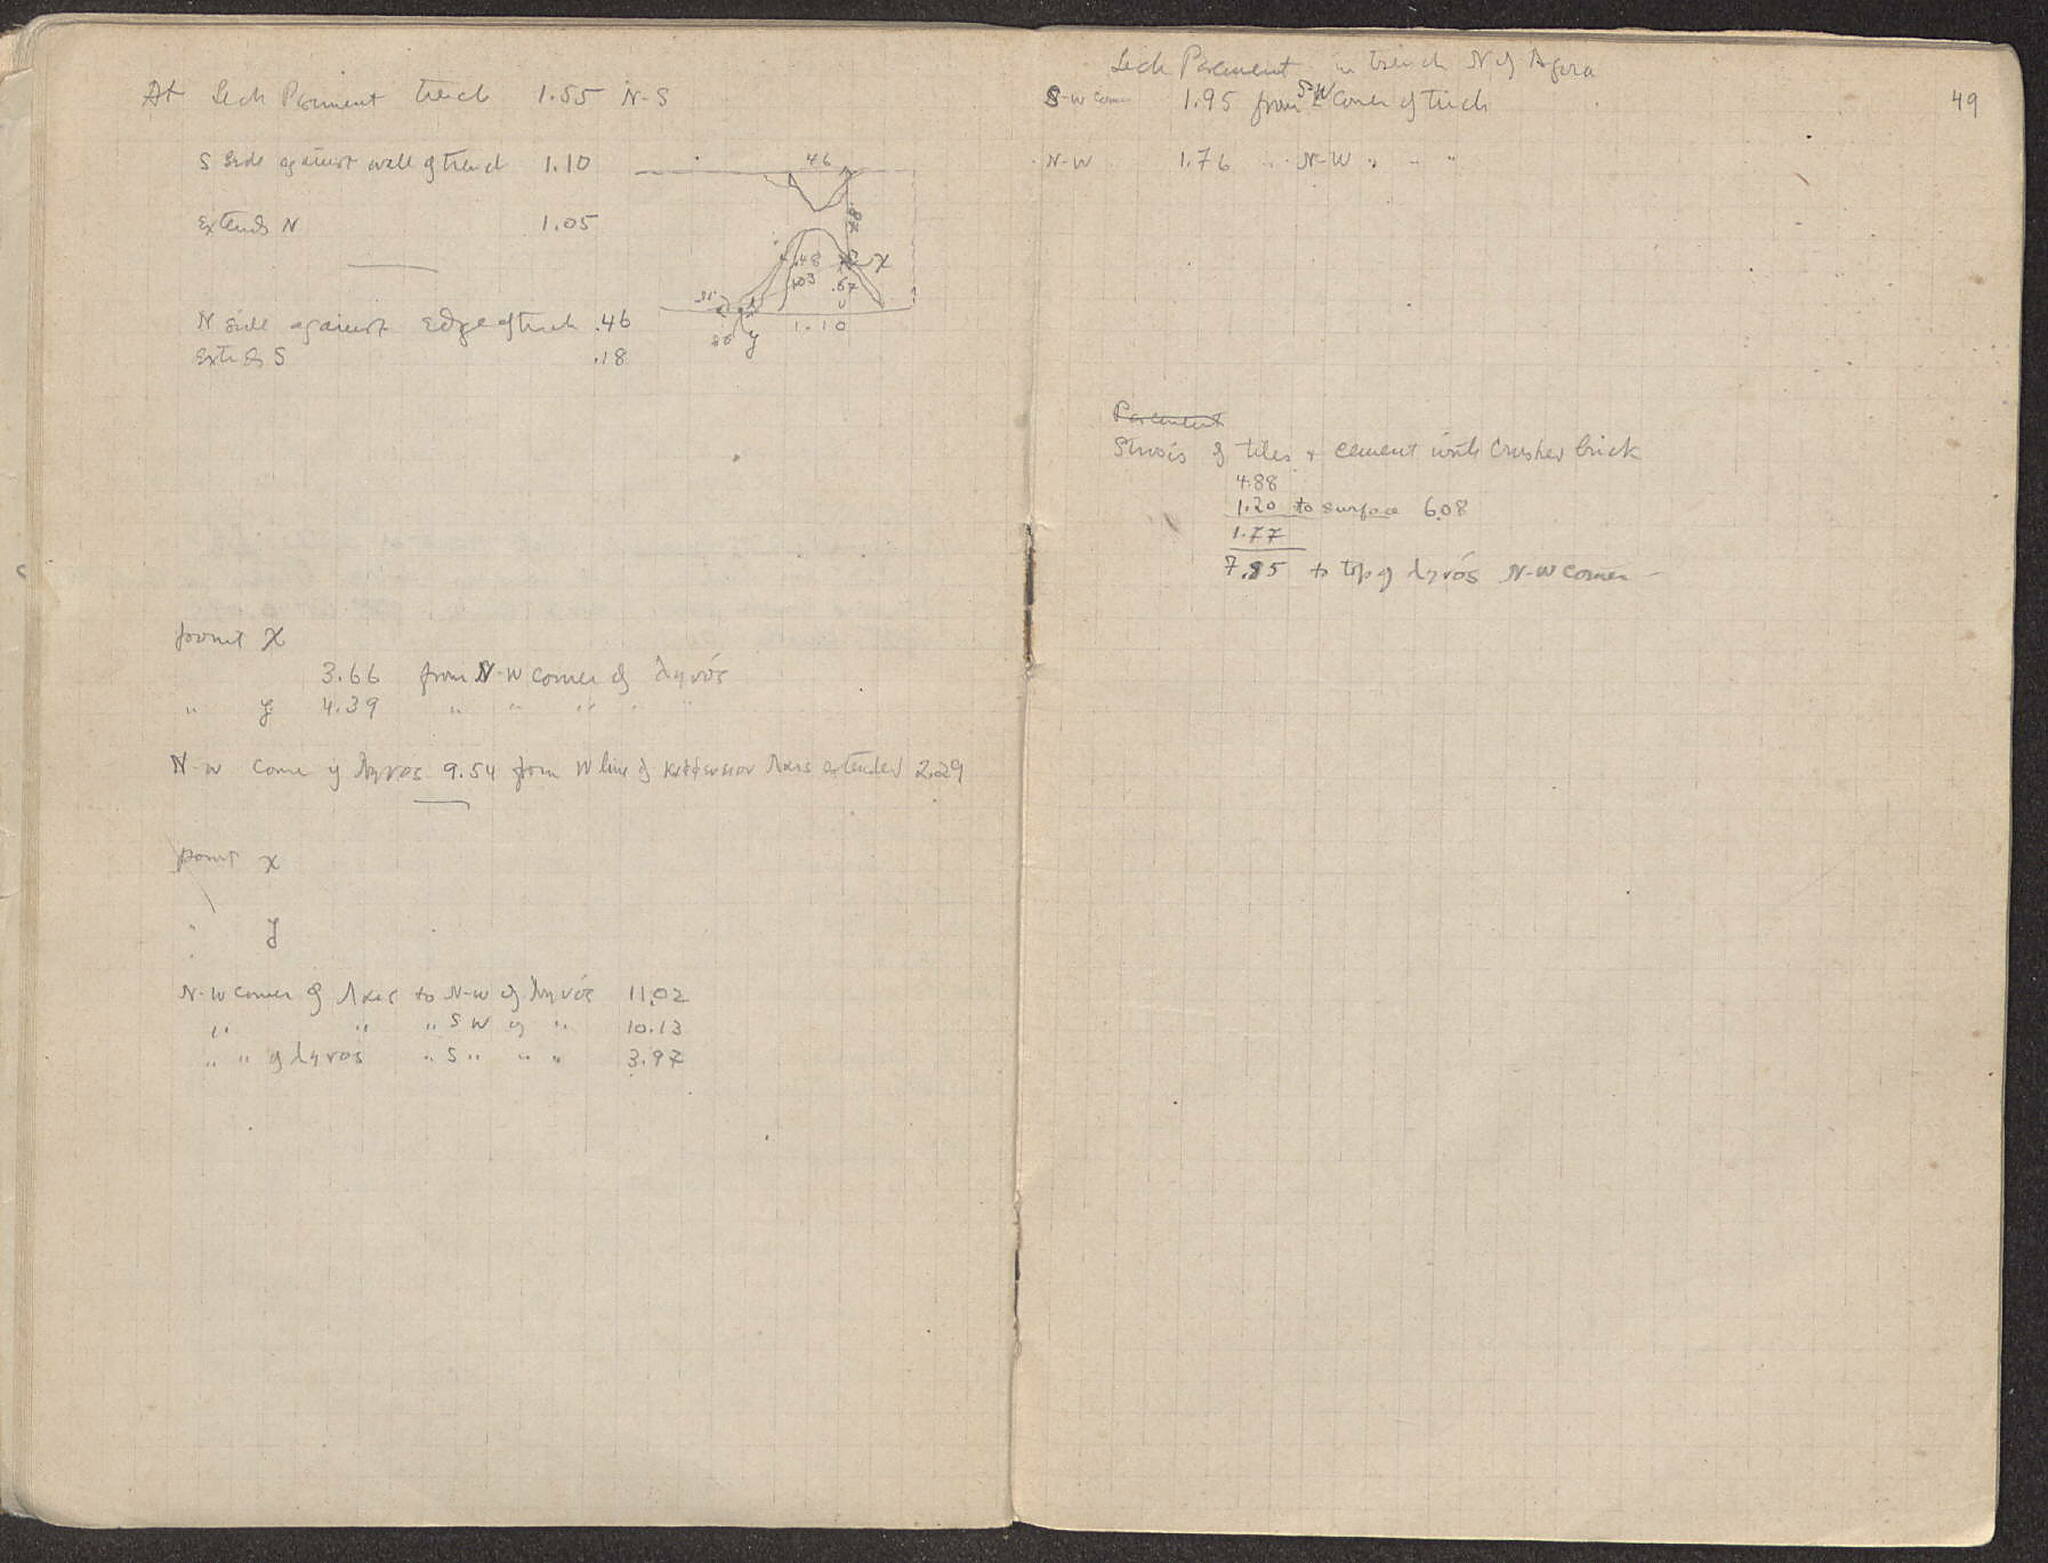 At Lech Pavement trench 1.55 N-S
S side against wall of trench 1.10
Extends N 1.05
N side against edge of trench .46
Extends S .18
46
.87
.48 x
1.03 .67
1.10
y
point x
3.66 from N-W corner of ληνός
" y 4.39 " " " " "
N-W corner of ληνος 9.54 from W line of extended 2.29
point x
" y
N-W corner of to N-W of ληνός 11.02
" " " S W of " 10.13
" " of ληνος " S " " " 3.97
Lech Pavement in trench N of Agora
49
S-W corner 1.95 from SW corner of trench
N-W 1.76 " N-W " " "
Pavement
Strosis of tiles + cement with crushed brick
4.88
1.20 to surface 6.08
1.77
7.85 to top of ληνός N-W corner